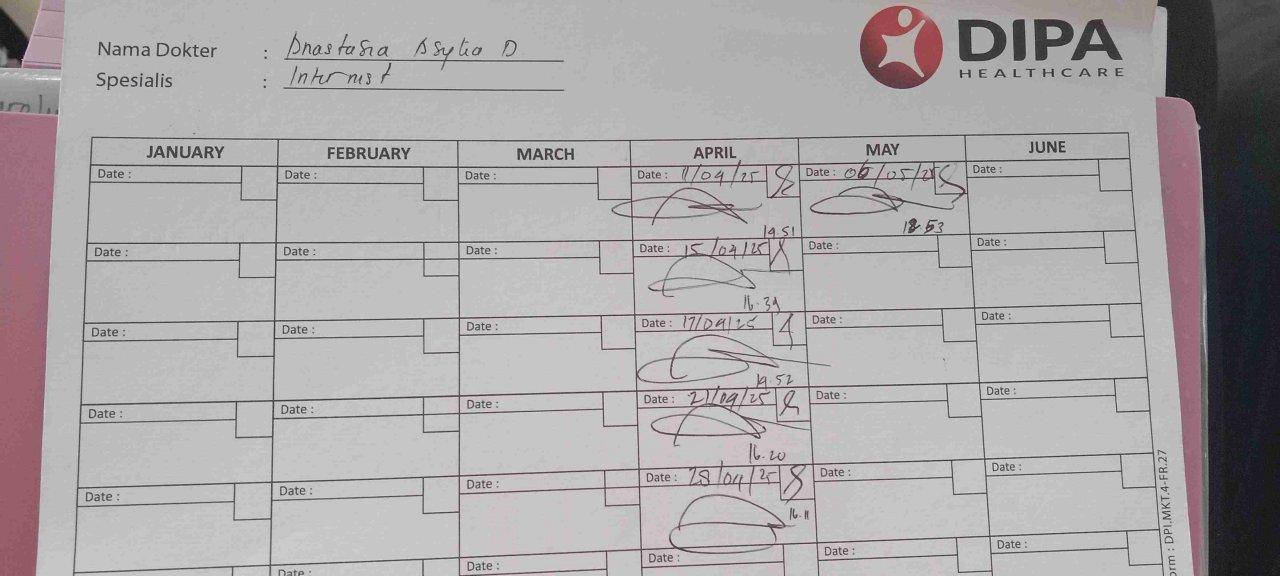 DIPA
HEALTHCARE
Nama Dokter : Anastasia Asylia D
Spesialis : Internist
JANUARY FEBRUARY MARCH APRIL MAY JUNE
Date : Date : Date : Date : 11/04/25 Date : 06/05/25 Date :
19.51 18.53
Date : Date : Date : Date : 15/04/25 Date : Date :
16.39
Date : Date : Date : Date : 17/04/25 Date : Date :
19.52
Date : Date : Date : Date : 21/04/25 Date : Date :
16.20
Date : Date : Date : Date : 28/04/25 Date : Date :
16.11
Date : Date : Date : Date : Date :
orm : DPI.MKT.4-FR.27